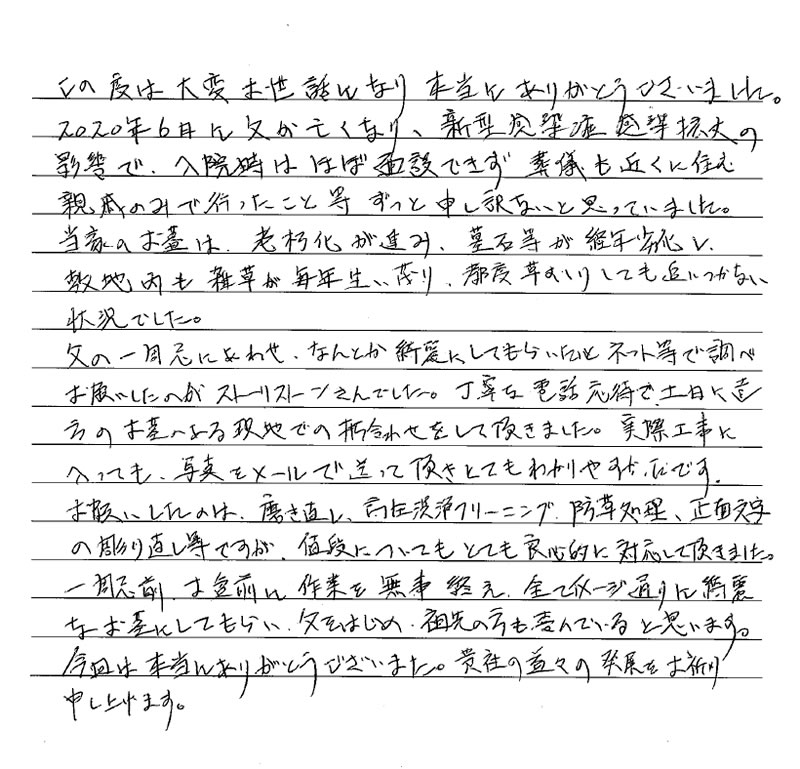 この度は大変お世話になり本当にありがとうございました。
2020年6月に父が亡くなり、新型感染症感染拡大の
影響で、入院時はほぼ面談できず葬儀も近くに住む
親戚のみで行ったこと等ずっと申し訳ないと思っていました。
当家のお墓は、老朽化が進み、墓石等が経年劣化し、
敷地内も雑草が毎年生い茂り、都度草むしりしても追いつかない
状況でした。
父の一周忌にあわせ、なんとか綺麗にしてもらいたいとネット等で調べ
お願いしたのがストーリストーンさんでした。丁寧な電話応待で土日に遠
方のお墓へよる現地での打合わせをして頂きました。実際工事に
入っても、写真をメールで送って頂きとてもわかりやすかったです。
お願いしたのは、磨き直し、高圧洗浄クリーニング、防草処理、正面文字
の彫り直し等ですが、値段についてもとても良心的に対応して頂きました。
一周忌前、お盆前に作業を無事終え、全てイメージ通りに綺麗
なお墓にしてもらい、父をはじめ、祖先の方も喜んでいると思います。
今回は本当にありがとうございました。貴社の益々の発展をお祈り
申し上げます。